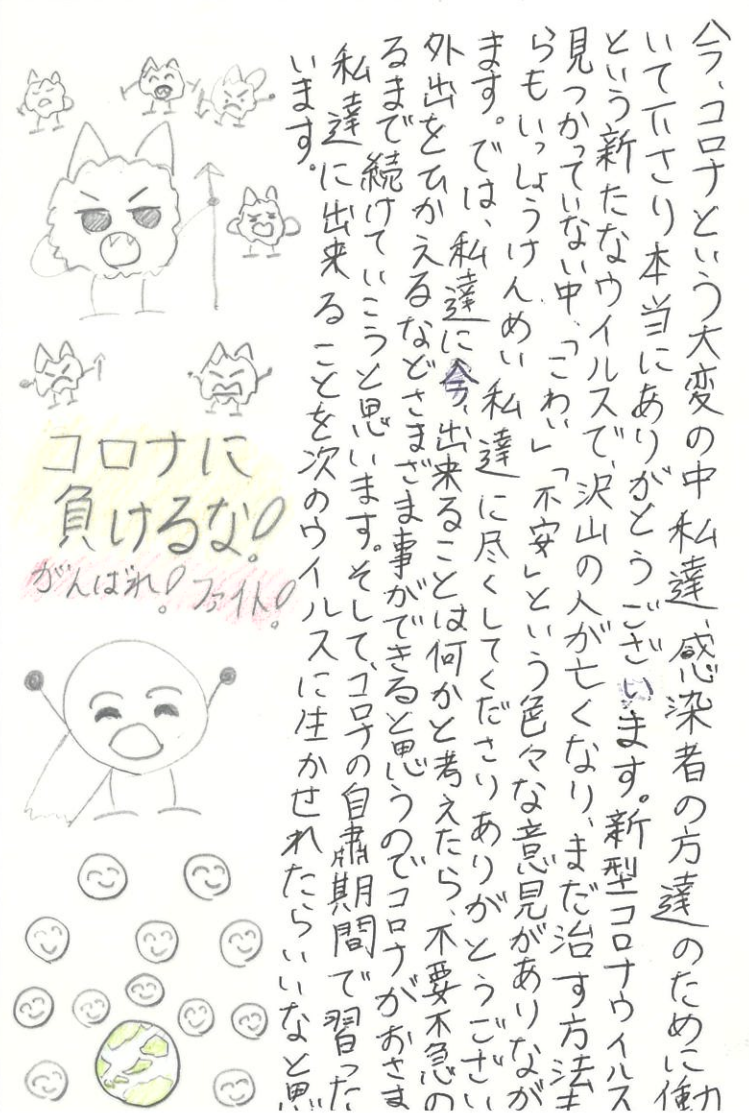 今、コロナという大変の中私達、感染者の方達のために働
いて下さり本当にありがとうございます。新型コロナウイルス
という新たなウイルスで、沢山の人が亡くなり、まだ治す方法も
見つかっていない中、「こわい」「不安」という色々な意見がありなが
らもいっしょうけんめい私達に尽くしてくださりありがとうござい
ます。では、私達に今、出来ることは何かと考えたら、不要不急の
外出をひかえるなどさまざま事ができると思うのでコロナがおさま
るまで続けていこうと思います。そして、コロナの自粛期間で習った
私達に出来ることを次のウイルスに生かせれたらいいなと思
います。
コロナに
負けるな!
がんばれ!ファイト!